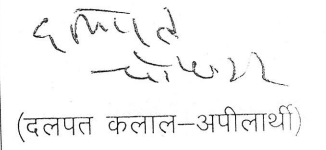 दलपत
(दलपत कलाल–अपीलार्थी)